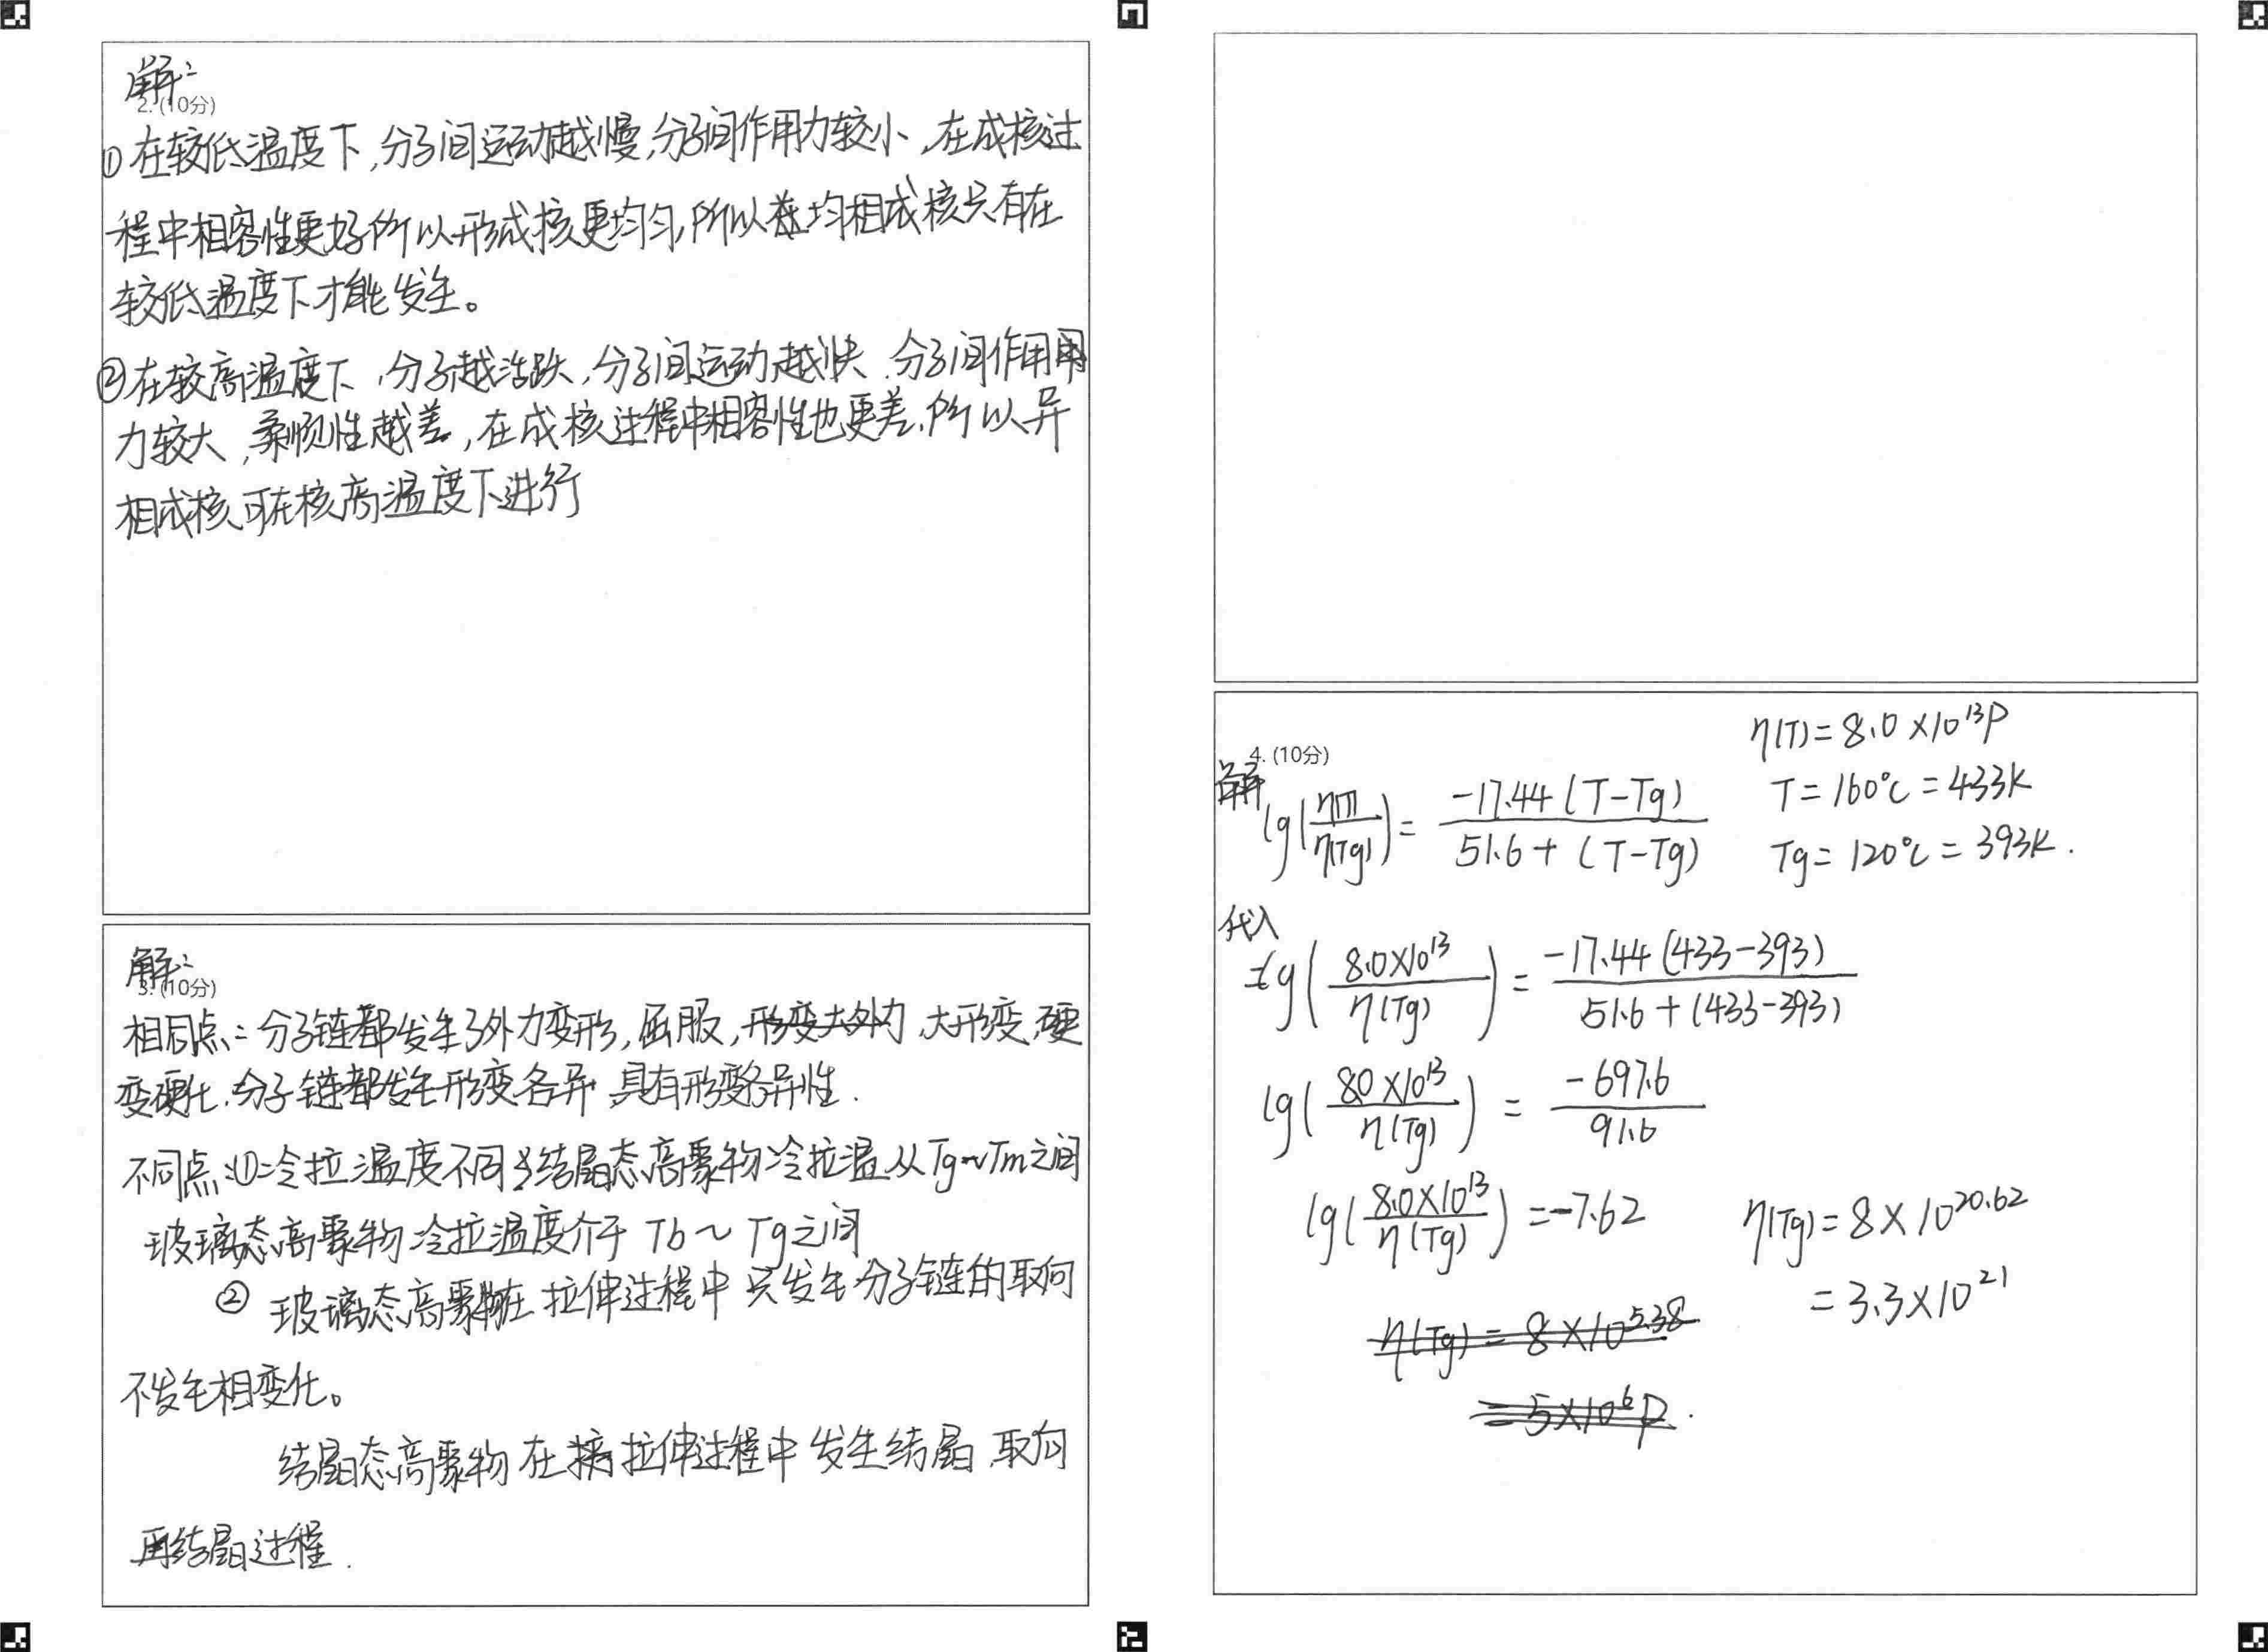 解:
2. (10分)
①在较低温度下,分子间运动越慢,分子间作用力较小,在成核过
程中相容性更好所以形成核更均匀,所以均相成核只有在
较低温度下才能发生。
②在较高温度下,分子越活跃,分子间运动越快.分子间作用
力较大,柔顺性越差,在成核过程中相容性也更差,所以异
相成核可在核高温度下进行
解:
3. (10分)
相同点:分子链都发生了外力变形,屈服,大形变,硬
变硬化.分子链都发生形变各异,具有形变各异性.
不同点:①:冷拉温度不同 结晶态高聚物冷拉温从Tg~Tm之间
玻璃态高聚物冷拉温度介于 Tb~Tg之间
② 玻璃态高聚物在拉伸过程中只发生分子链的取向
不发生相变化。
结晶态高聚物在拉伸过程中发生结晶,取向
再结晶过程.
4. (10分)
解
lg(η(T)/η(Tg)) = -17.44(T-Tg)/51.6+(T-Tg)
η(T)=8.0×10¹³P
T=160℃=433K
Tg=120℃=393K.
代入
lg(8.0×10¹³/η(Tg)) = -17.44(433-393)/51.6+(433-393)
lg(8.0×10¹³/η(Tg)) = -697.6/91.6
lg(8.0×10¹³/η(Tg)) =-7.62
η(Tg)=8×10^5.38
=5×10⁶P.
η(Tg)=8×10^20.62
=3.3×10²¹